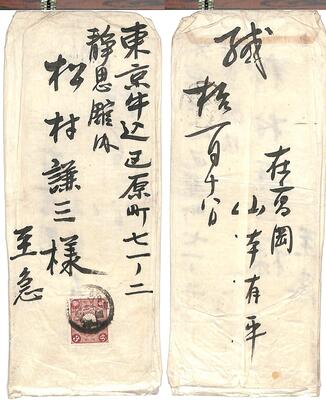 東京牛込区原町七一ノ二
静思館内
松村謙三様
至急
緘
拾一月十八日
在高岡
山本有平